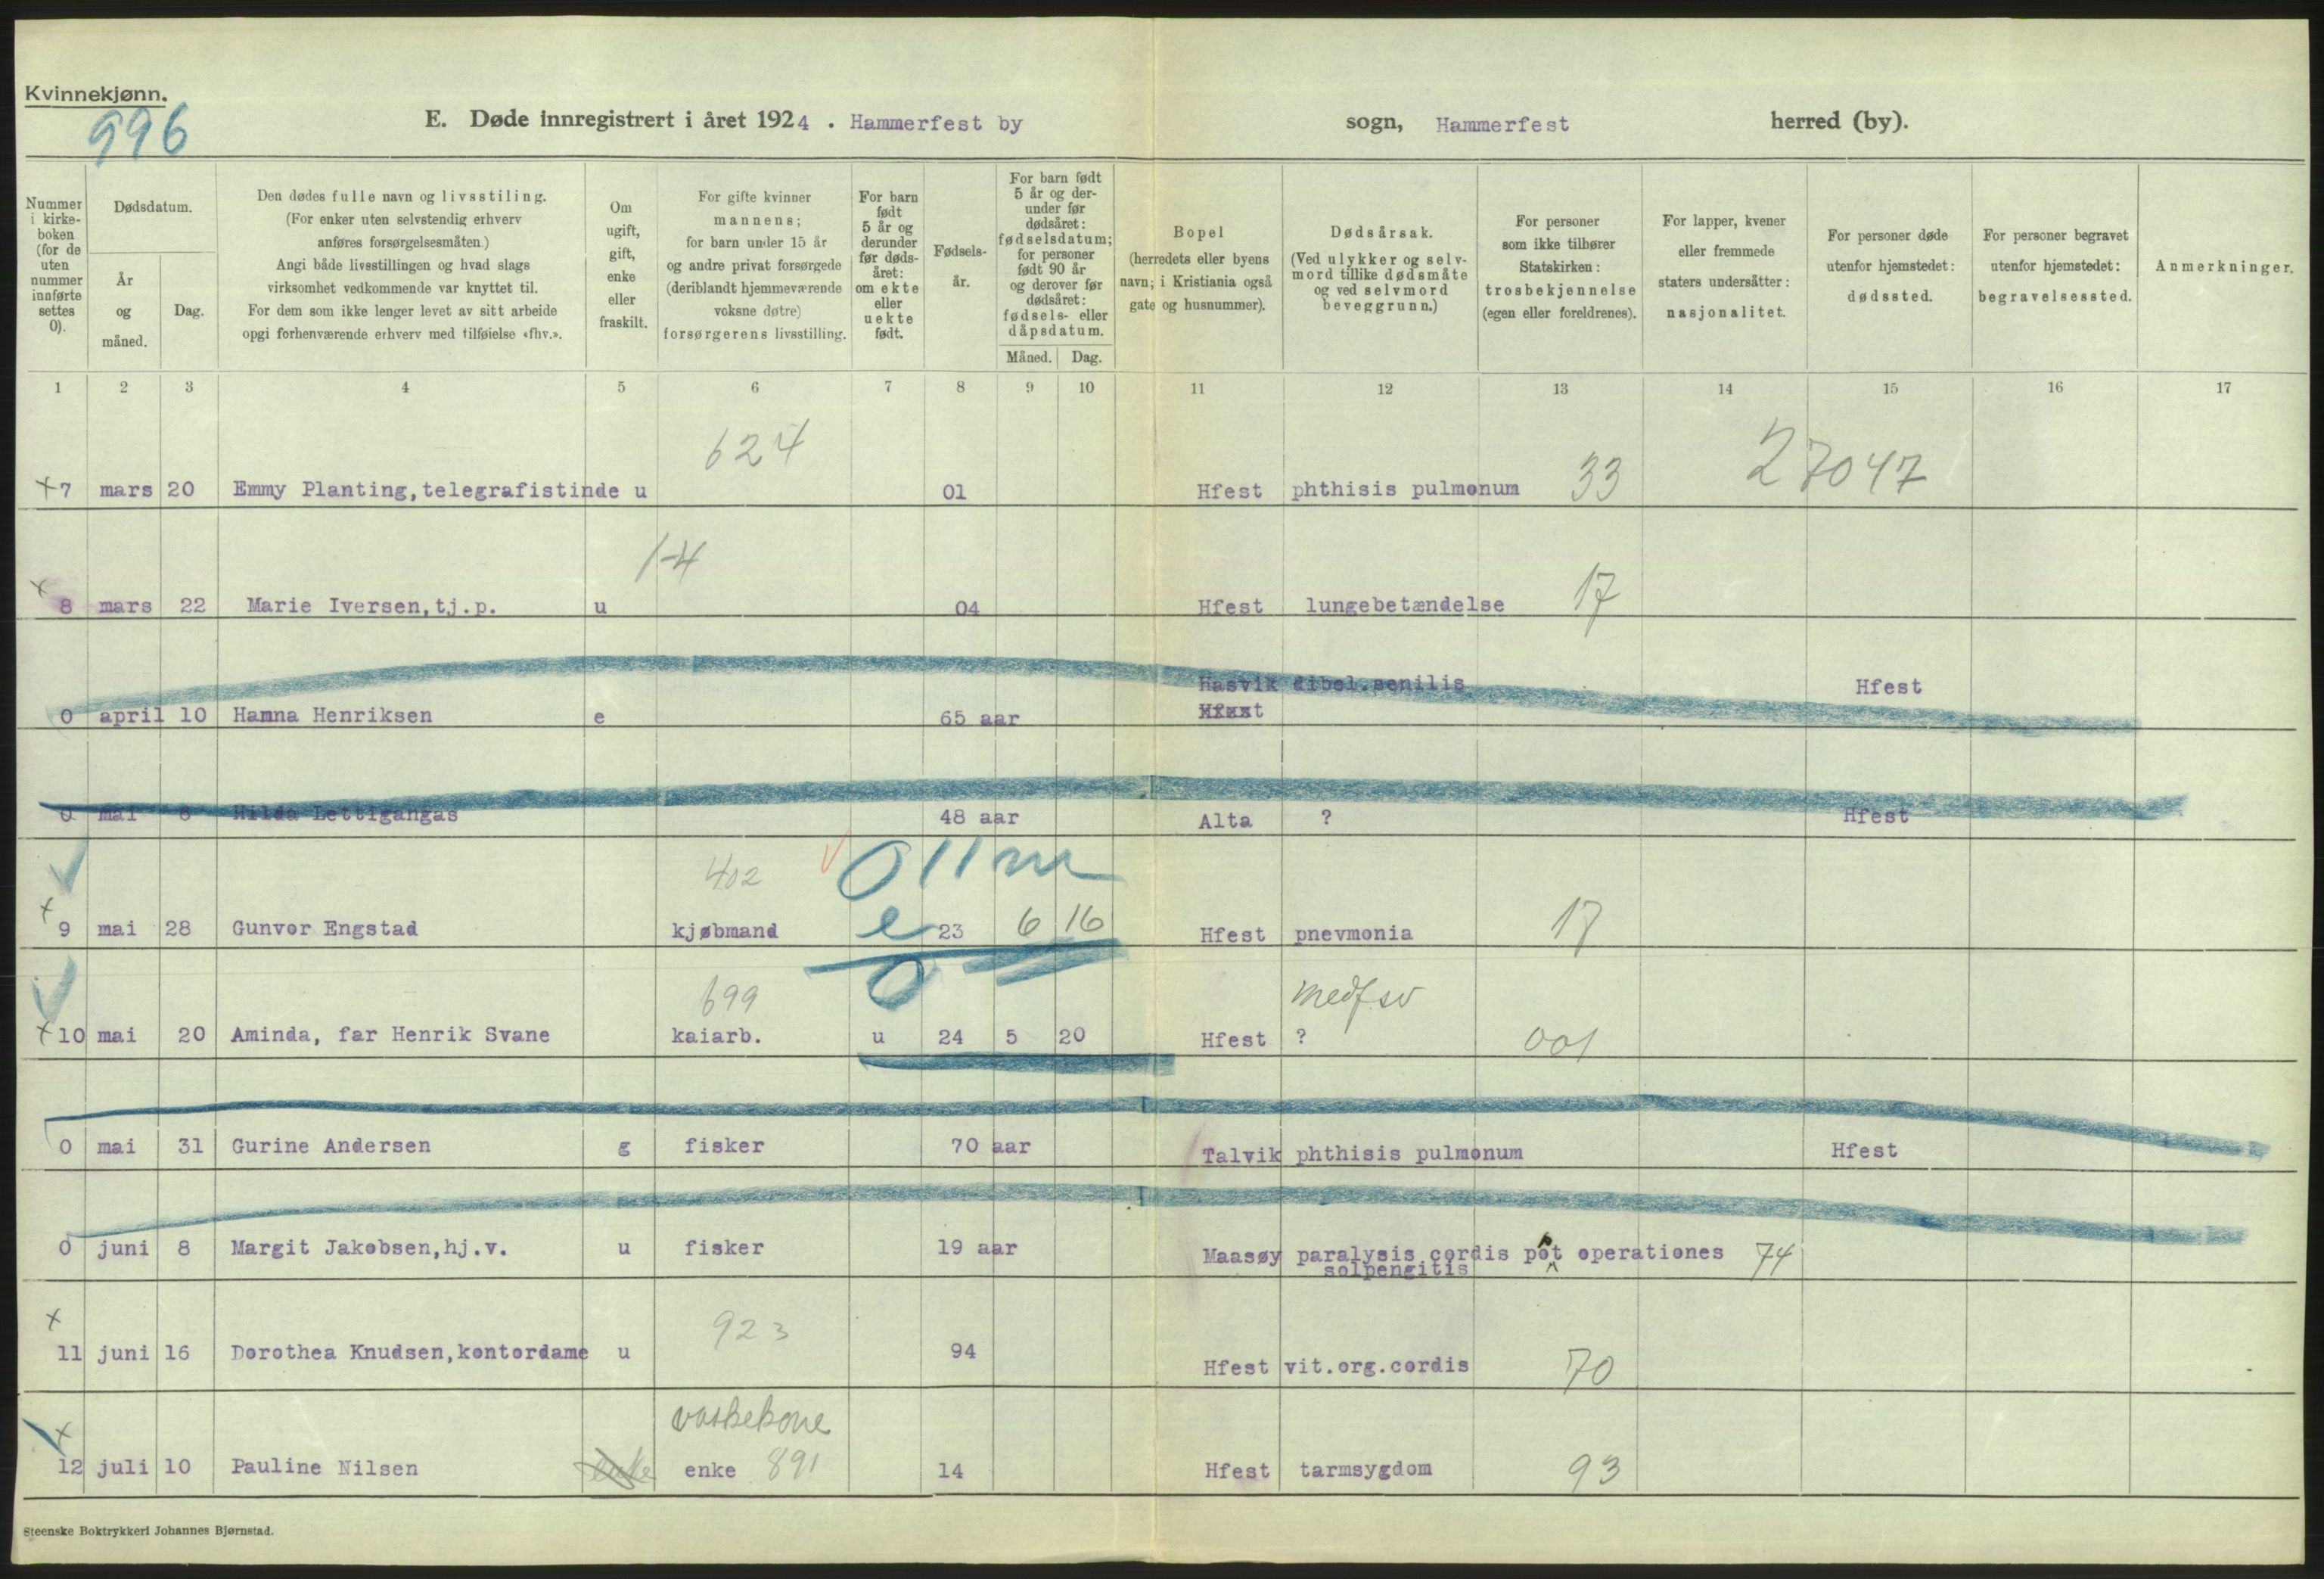 Kvinnekjønn.
996
E. Døde innregistrert i året 1924 . Hammerfest by sogn, Hammerfest herred (by).
Nummer i kirke- boken (for de uten nummer innførte settes 0).
Dødsdatum.
År og måned.
Dag.
Den dødes fulle navn og livsstiling.
(For enker uten selvstendig erhverv
anføres forsørgelsesmåten.)
Angi både livsstillingen og hvad slags
virksomhet vedkommende var knyttet til.
For dem som ikke lenger levet av sitt arbeide
opgi forhenværende erhverv med tilføielse «fhv.».
Om ugift, gift, enke eller fraskilt.
For gifte kvinner
mannens;
for barn under 15 år
og andre privat forsørgede
(deriblandt hjemmeværende
voksne døtre)
forsørgerens livsstilling.
For barn født 5 år og derunder før døds- året: om ekte eller uekte født.
Fødsels- år.
For barn født 5 år og der- under før dødsåret: fødselsdatum; for personer født 90 år og derover før dødsåret: fødsels- eller dåpsdatum.
Måned. Dag.
Bopel
(herredets eller byens
navn; i Kristiania også
gate og husnummer).
Dødsårsak.
(Ved ulykker og selv-
mord tillike dødsmåte
og ved selvmord
beveggrunn.)
For personer
som ikke tilhører
Statskirken:
trosbekjennelse
(egen eller foreldrenes).
For lapper, kvener
eller fremmede
staters undersåtter:
nasjonalitet.
For personer døde
utenfor hjemstedet:
dødssted.
For personer begravet
utenfor hjemstedet:
begravelsessted.
Anmerkninger.
1 2 3 4 5 6 7 8 9 10 11 12 13 14 15 16 17
624
+7 mars 20 Emmy Planting, telegrafistinde u 01 Hfest phthisis pulmonum 33 27047
1-4
x
8 mars 22 Marie Iversen, tj.p. u 04 Hfest lungebetændelse 17
Hasvik dibel.senilis Hfest
0 april 10 Hanna Henriksen e 65 aar
0 mai 6 Hilda Lettigangas 48 aar Alta ? Hfest
402 V 011 m
+
9 mai 28 Gunvor Engstad kjøbmand e 23 6 16 Hfest pnevmonia 17
699 0 medf sv
+10 mai 20 Aminda, far Henrik Svane kaiarb. u 24 5 20 Hfest ? 001
0 mai 31 Gurine Andersen g fisker 70 aar Talvik phthisis pulmonum Hfest
0 juni 8 Margit Jakobsen, hj.v. u fisker 19 aar Maasøy paralysis cordis pot operationes 74
solpengitis
x 923
11 juni 16 Dorothea Knudsen, kontordame u 94 Hfest vit.org.cordis 70
x vaskekone
12 juli 10 Pauline Nilsen enke enke 891 14 Hfest tarmsygdom 93
Steenske Boktrykkeri Johannes Bjørnstad.